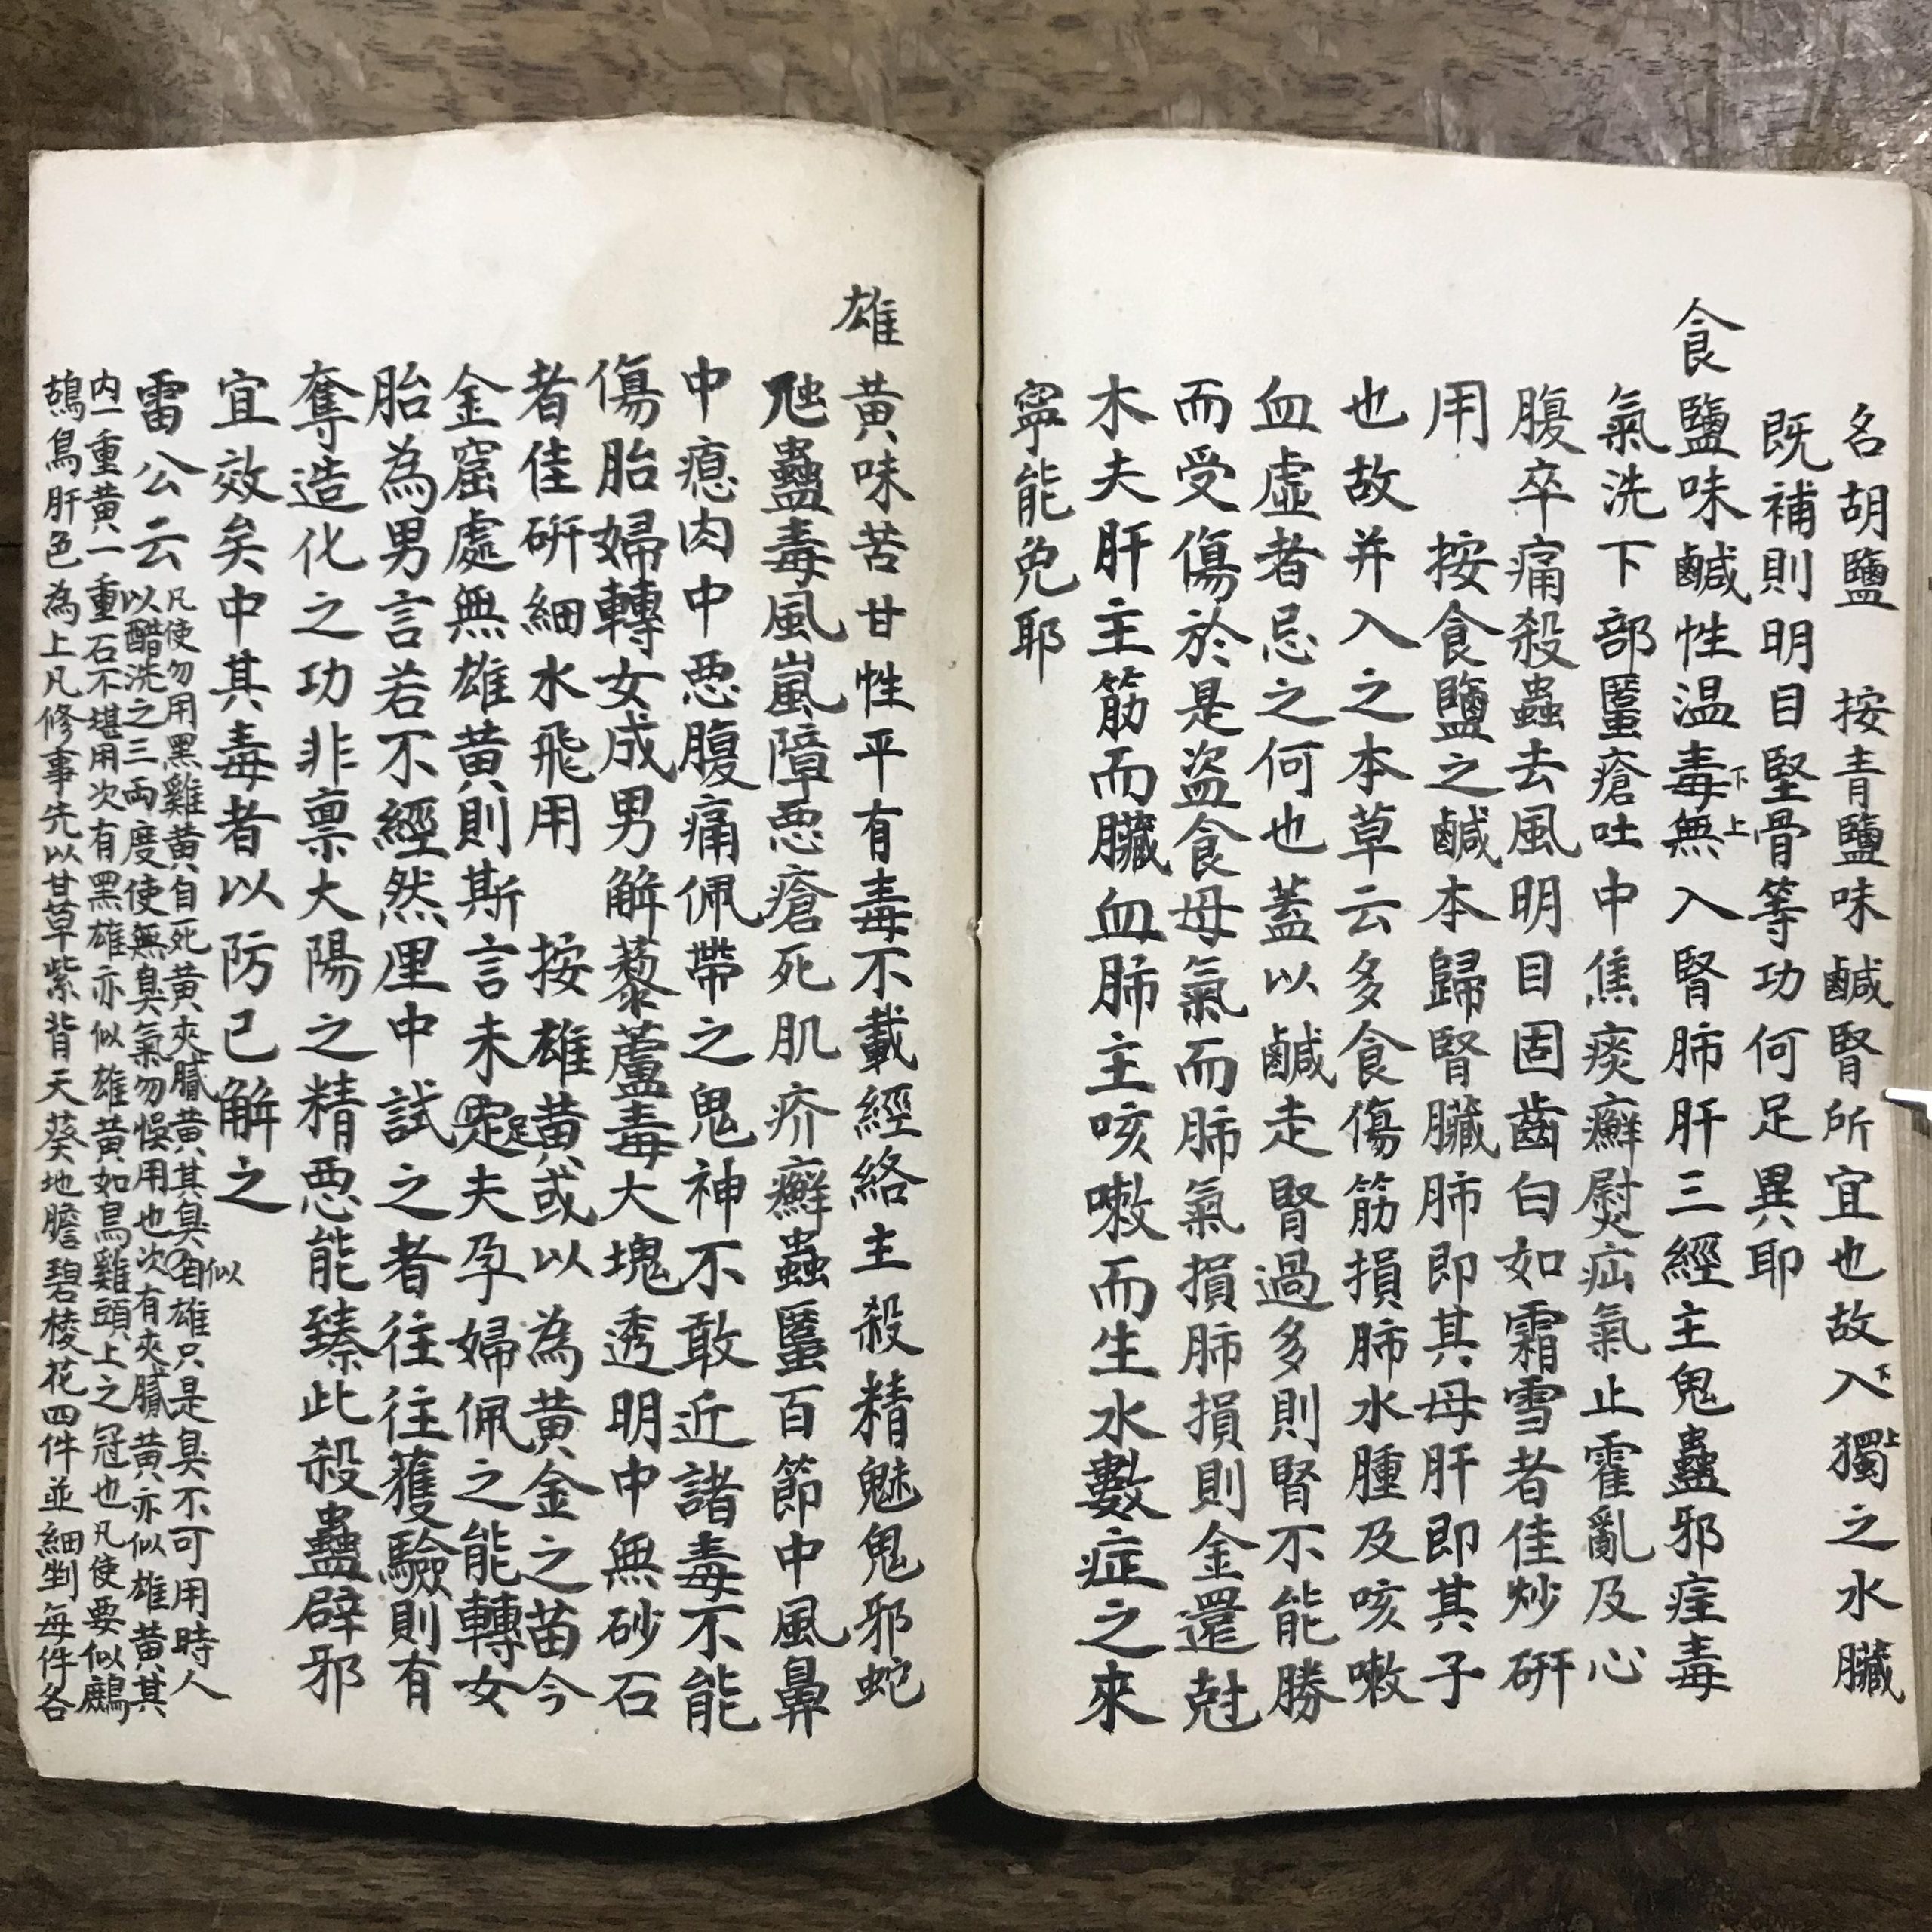 名胡鹽　按青鹽味鹹腎所宜也故入下獨上之水臟
既補則明目堅骨等功何足異耶
食鹽味鹹性温毒下無上入腎肺肝三經主鬼蠱邪疰毒
氣洗下部䘌瘡吐中焦痰癬熨疝氣止霍亂及心
腹卒痛殺蟲去風明目固齒白如霜雪者佳炒研
用　按食鹽之鹹本歸腎臟肺即其母肝即其子
也故并入之本草云多食傷筋損肺水腫及咳嗽
血虛者忌之何也蓋以鹹走腎過多則腎不能勝
而受傷於是盜食母氣而肺氣損肺損則金還尅
木夫肝主筋而臟血肺主咳嗽而生水數症之來
寧能免耶
雄黃味苦甘性平有毒不載經絡主殺精魅鬼邪蛇
虺蠱毒風嵐障惡瘡死肌疥癬蟲䘌百節中風鼻
中瘜肉中惡腹痛佩帶之鬼神不敢近諸毒不能
傷胎婦轉女成男解藜蘆毒大塊透明中無砂石
者佳研細水飛用　按雄黃或以為黃金之苗今
金窟處無雄黃則斯言未定足夫孕婦佩之能轉女
胎為男言若不經然厘中試之者往往獲驗則有
奪造化之功非禀大陽之精惡能臻此殺蠱辟邪
宜效矣中其毒者以防己解之
雷公云凡使勿用黑雞黃自死黃夾膩黃其臭相似雄只是臭不可用時人
以醋洗之三兩度使無臭氣勿悞用也次有夾膩黃亦似雄黃其
内一重黃一重石不堪用次有黑雄亦似雄黃如烏雞頭上之冠也凡使要似鷓
鴣鳥肝色為上凡修事先以甘草紫背天葵地膽碧棱花四件並細剉每件各